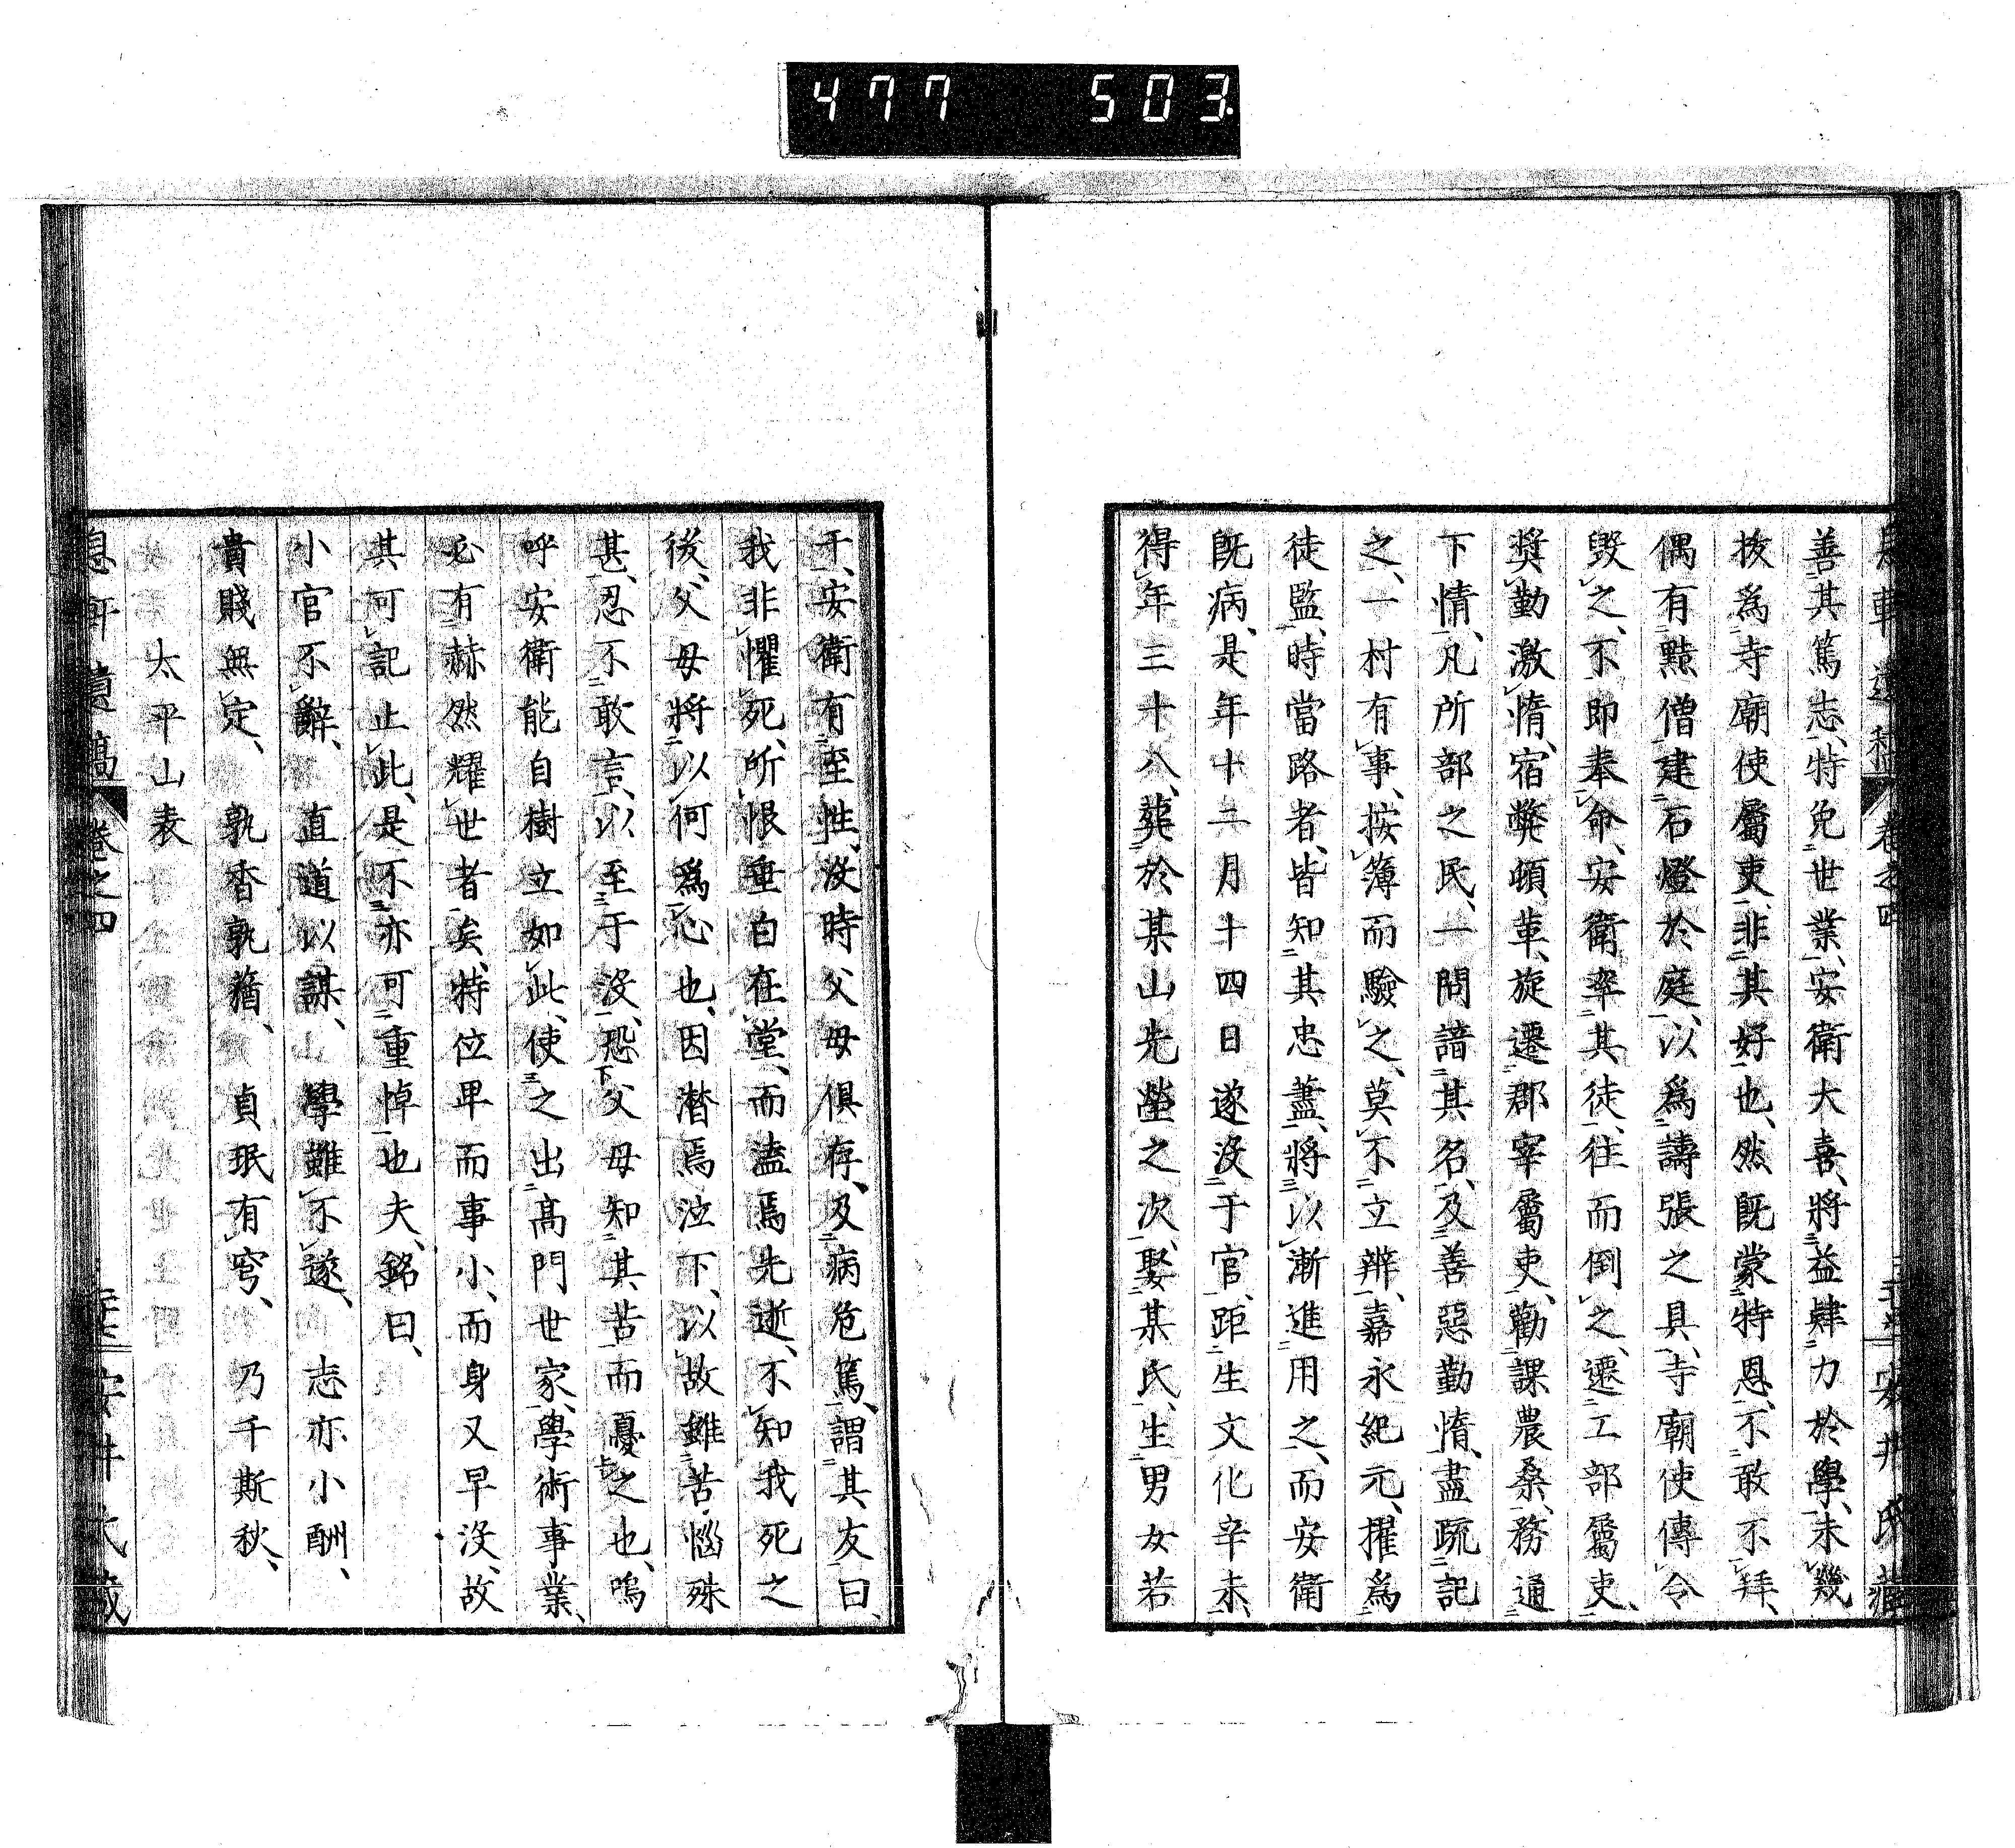 477 503
息軒遺稿 卷之四 安井氏藏
善其篤志、特免世業、安衛大喜、將益肆力於學、未幾
拔爲寺廟使屬吏、非其好也、然既蒙特恩、不敢不拜、
偶有黠僧建石燈於庭、以爲譸張之具、寺廟使傳令
毀之、不即奉命、安衛率其徒、往而倒之、遷工部屬吏、
奬勤激惰、宿弊頓革、旋遷郡宰屬吏、勸課農桑、務通
下情、凡所部之民、一問諳其名、及善惡勤惰、盡疏記
之、一村有事、按簿而驗之、莫不立辨、嘉永紀元、擢爲
徒監、時當路者、皆知其忠藎、將以漸進用之、而安衛
既病、是年十二月十四日遂沒于官、距生文化辛未、
得年三十八、葬於某山先塋之次、娶某氏、生男女若
干、安衛有至性、沒時父母俱存、及病危篤、謂其友曰、
我非懼死、所恨垂白在堂、而溘焉先逝、不知我死之
後、父母將以何爲心也、因潸焉泣下、以故雖苦惱殊
甚、忍不敢言、以至于沒、恐父母知其苦而憂之也、嗚
呼安衛能自樹立如此、使之出高門世家、學術事業、
必有赫然耀世者矣、特位卑而事小、而身又早沒、故
其可記止此、是不亦可重悼也夫、銘曰、
小官不辭、 直道以謀、 學雖不遂、 志亦小酬、
貴賤無定、 孰香孰蕕、 貞珉有窆、 乃千斯秋、
太平山表
息軒遺稿 卷之四 安井氏藏